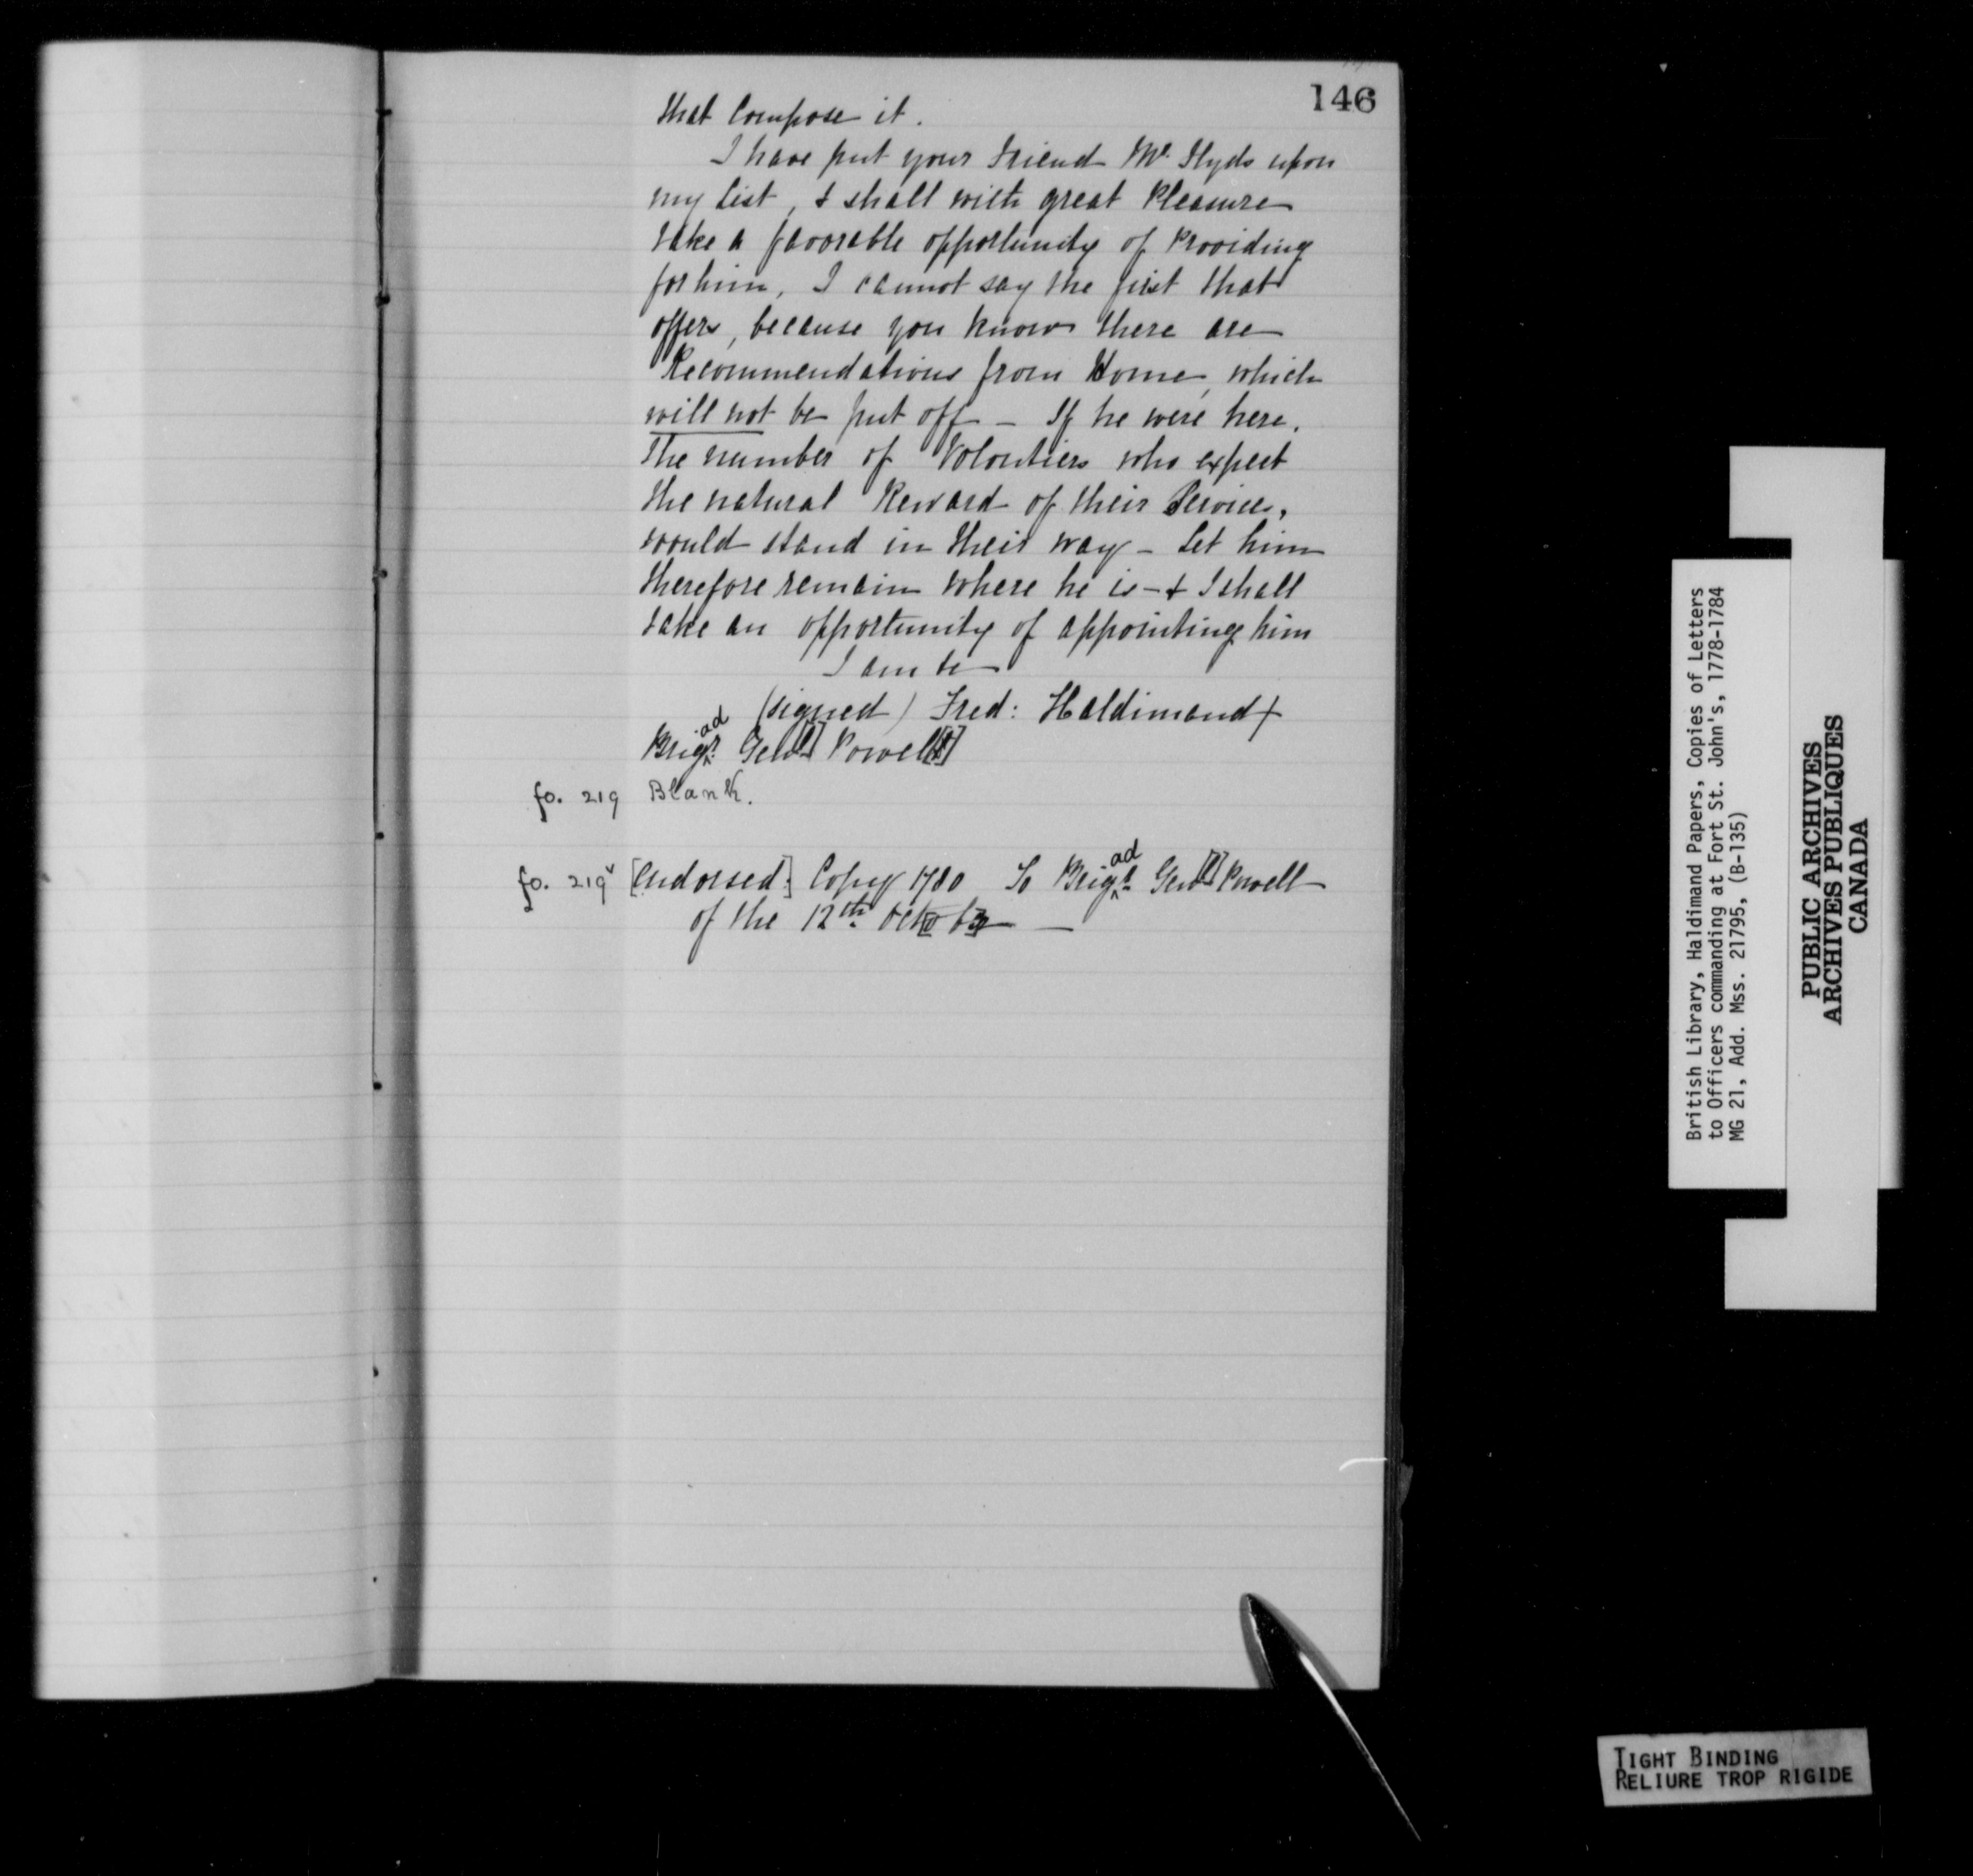 146
that Compose it.
I have put your Friend Mr. Hyds upon
my List, & shall with great Pleasure
take a favorable opportunity of Providing
for him, I cannot say the first that
offers, because you know there are
Recommendations from Home, which
will not be put off - If he were here.
The number of Volontiers who expect
the natural Reward of their Services,
would stand in their way - Let him
therefore remain where he is - & I shall
take an opportunity of appointing him
I am &c
(signed) Fred: Haldimand
Brigad. Genl. Powell
fo. 219 Blank.
fo. 219v [Endorsed.] Copy 1780 To Brigad. Gen[l] Powell
of the 12th. Octobr —
British Library, Haldimand Papers, Copies of Letters
to Officers commanding at Fort St. John's, 1778-1784
MG 21, Add. Mss. 21795, (B-135)
PUBLIC ARCHIVES
ARCHIVES PUBLIQUES
CANADA
TIGHT BINDING
RELIURE TROP RIGIDE